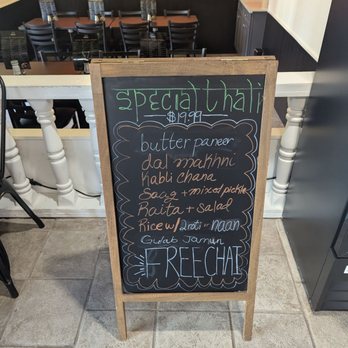 special thali
$19.99
butter paneer
dal makhni
Kabli chana
Saag + mixed pickle
Raita + salad
Rice w/ 2 roti or naan
Gulab Jamun
FREE CHAI